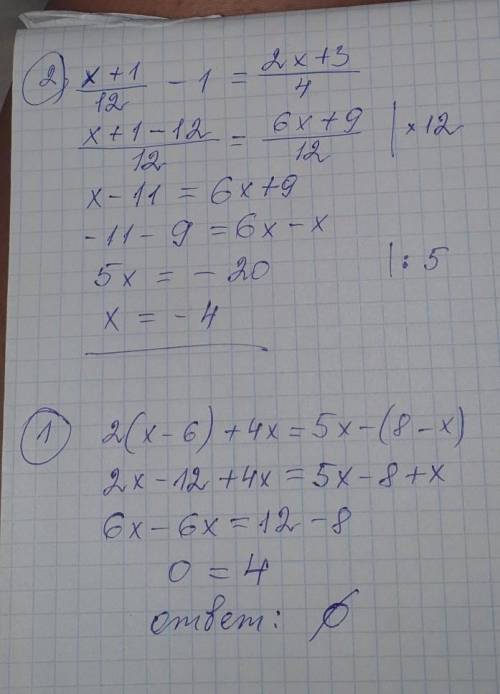 2) (x+1)/12 - 1 = (2x+3)/4
(x+1-12)/12 = (6x+9)/12 | ×12
x-11 = 6x+9
-11-9 = 6x-x
5x = -20 | : 5
x = -4
1 2(x-6)+4x=5x-(8-x)
2x-12+4x=5x-8+x
6x-6x=12-8
0 = 4
ответ: ∅